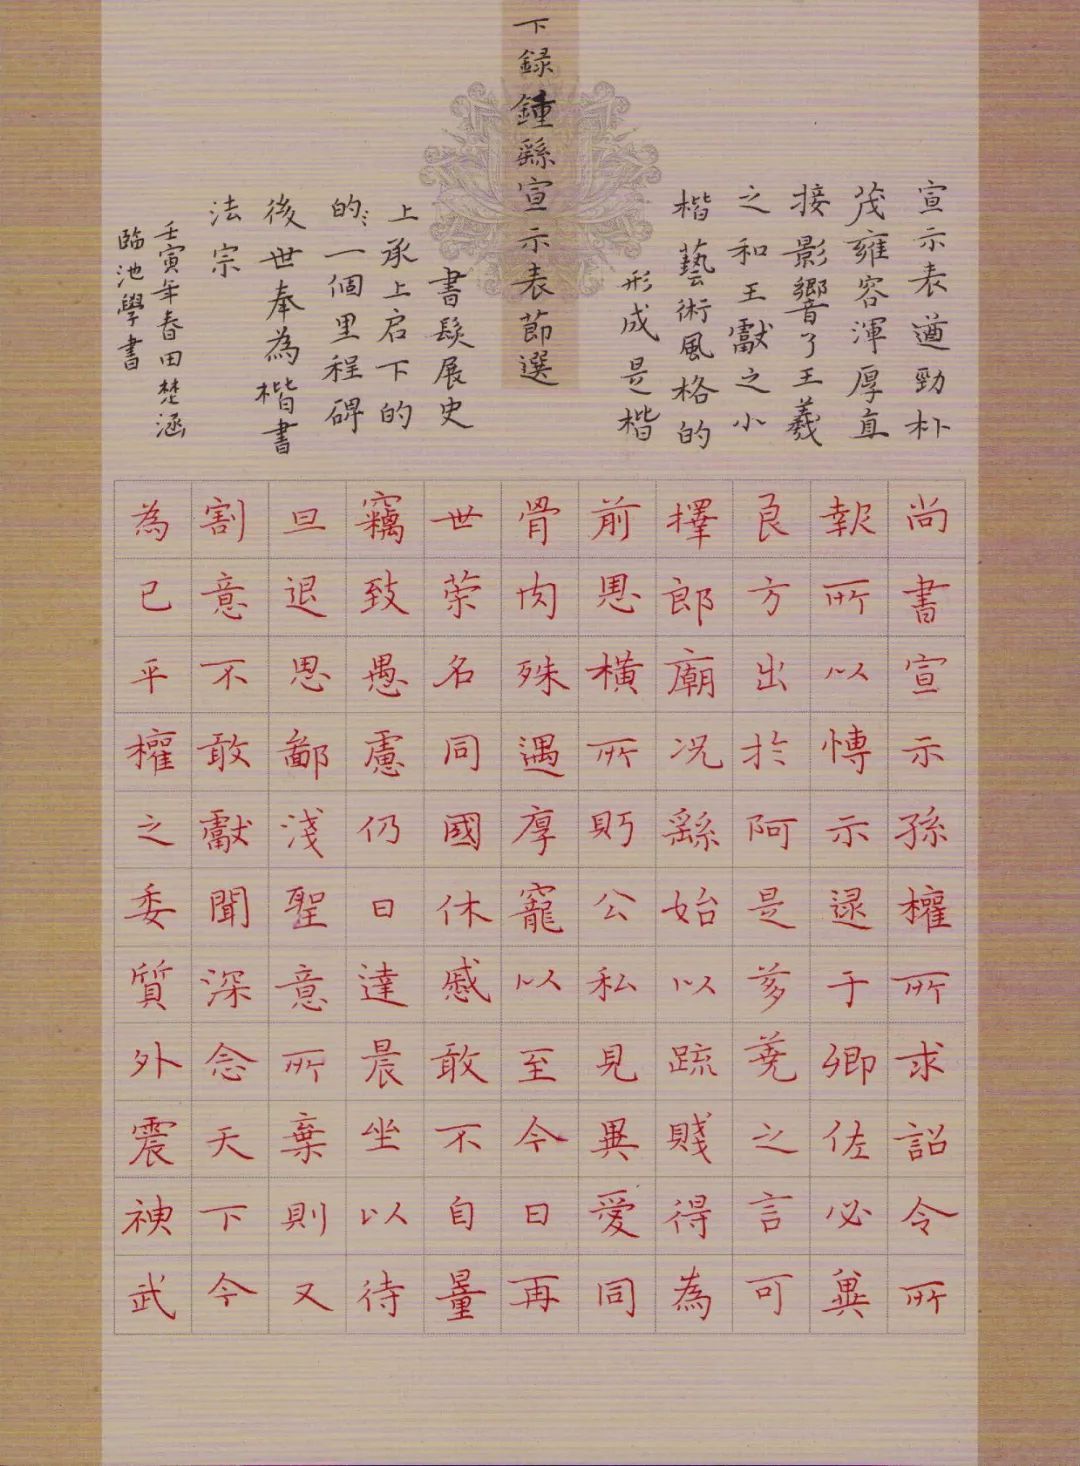 下録鍾繇宣示表節選
宣示表遒勁朴
茂雍容渾厚直
接影響了王羲
之和王獻之小
楷藝術風格的
形成是楷
書髮展史
上承上启下的
的〻一個里程碑
後世奉為楷書
法宗
壬寅年春田楚涵
臨池學書
尚書宣示孫權所求詔令所
報所以博示逯于卿佐必兾
良方出於阿是芻蕘之言可
擇郎廟況繇始以疏賤得為
前恩橫所眄公私見異愛同
骨肉殊遇厚寵以至今日再
世榮名同國休慼敢不自量
竊致愚慮仍日達晨坐以待
旦退思鄙淺聖意所棄則又
割意不敢獻聞深念天下今
為已平權之委質外震神武